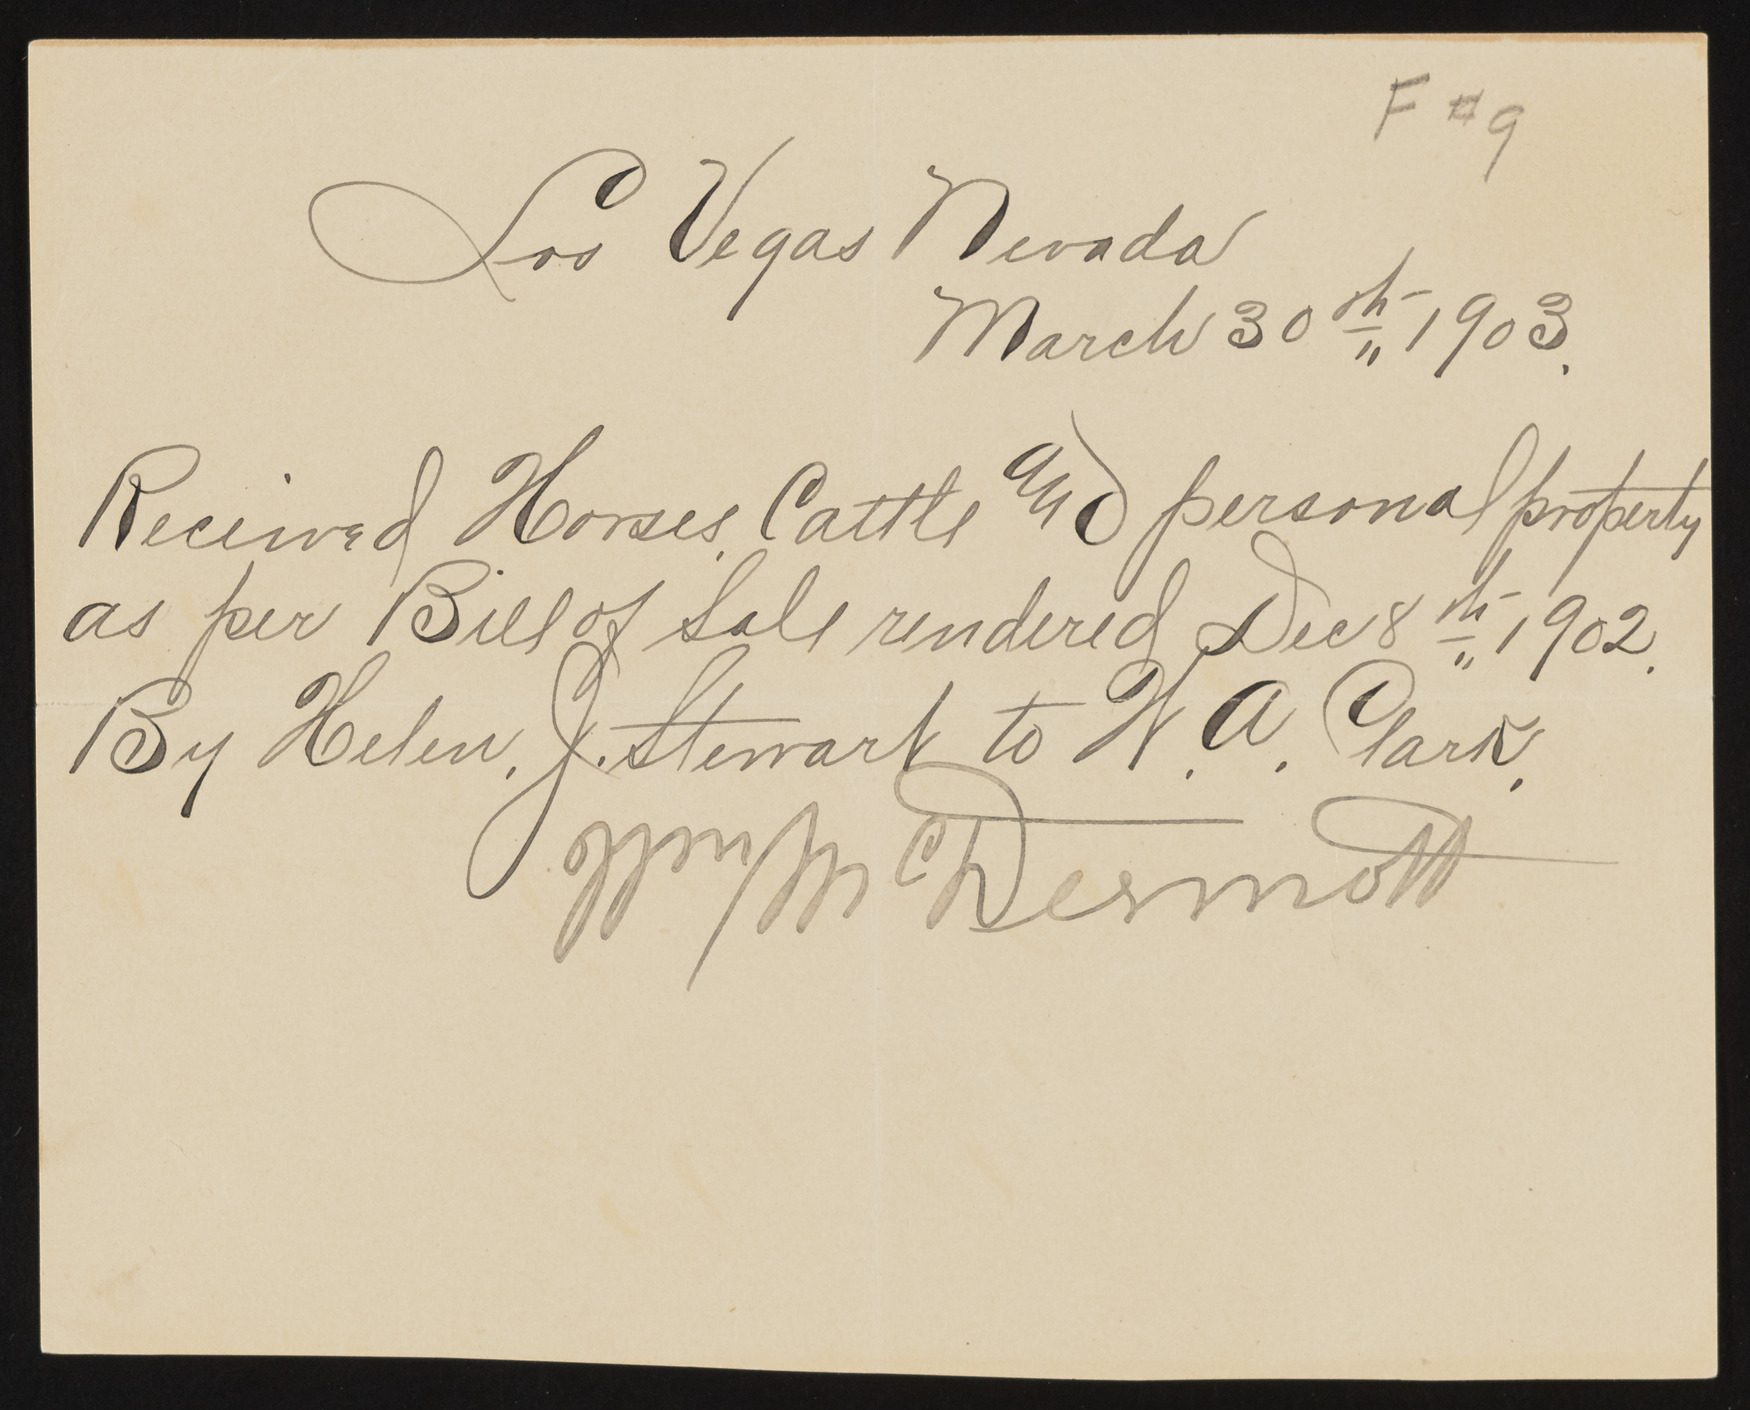 F #9
Los Vegas Nevada
March 30th 1903.
Received Horses, Cattle and personal property
as per Bill of Sale rendered Dec 8th 1902.
By Helen. J. Stewart to W. A. Clark.
Wm McDermott